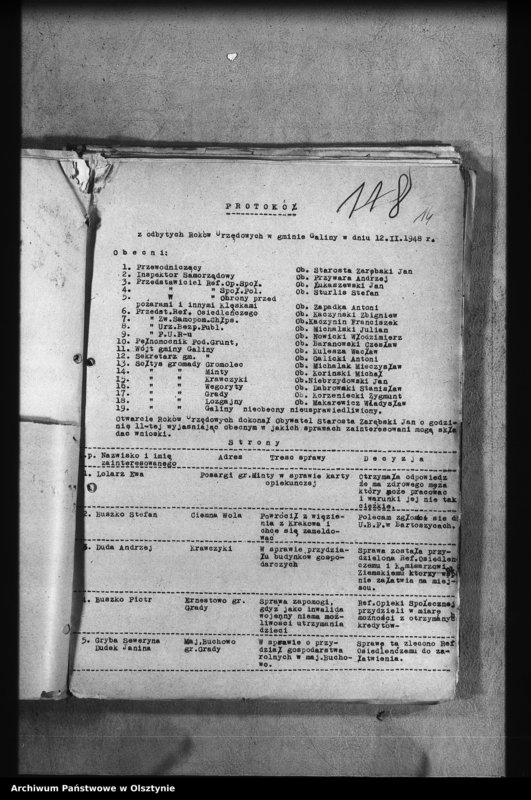 118
14
P R O T O K Ó Ł
z odbytych Roków Urzędowych w gminie Galiny w dniu 12.II.1948 r.
O b e c n i :
1. Przewodniczący Ob. Starosta Zarębski Jan
2. Inspektor Samorządowy Ob. Przywara Andrzej
3. Przedstawiciel Ref.Op.Społ. Ob. Łukaszewski Jan
4. " " Społ.Pol. Ob. Sturlis Stefan
5. W " Obrony przed
pożarami i innymi Klęskami Ob. Zapadka Antoni
6. Przedst.Ref. Osiedleńczego Ob. Kaczyński Zbigniew
7. " Zw.Samopom.Chłps. Ob.Kaczynin Franciszek
8. " Urz.Bezp.Publ. Ob. Michalski Julian
9. " P.U.R-u Ob. Nowicki Włodzimierz
10. Pełnomocnik Pod.Grunt. Ob. Baranowski Czesław
11. Wójt gminy Galiny Ob. Kulesza Wacław
12. Sekretarz gm. " Ob. Galicki Antoni
13. Sołtys gromady Gromolec Ob. Michalak Mieczysław
14. " " Minty Ob. Korinski Michał
15. " " Krawczyki Ob.Niebrzydowski Jan
16. " " Wegoryty Ob. Dabrowski Stanisław
17. " " Grady Ob. Korzeniecki Zygmunt
18. " " Lozgajny Ob. Makarewicz Władysław
19. " " Galiny nieobecny nieusprawiedliwiony.
Otwarcie Roków Urzędowych dokonał Obywatel Starosta Zarębski Jan o godzi-
nie 11-tej wyjaśniając obecnym w jakich sprawach zainteresowani mogą skła
dać wnioski.
S t r o n y
.p. Nazwisko i imię Adres Treść sprawy D e c y z j a
zainteresowanego
1. Lolarz Ewa Posargi gr.Minty w sprawie karty Otrzymała odpowiedz
opiekunczej że ma zdrowego męża
który może pracować
i warunki jej nie tak
ciężkie.
2. Buszko Stefan Ciemna Wola Powrócił z więzie- Polecam zgłosić sie do
nia z Krakowa i U.B.P.w Bartoszycach.
chce się zameldo-
wać
3. Duda Andrzej Krawczyki W sprawie przydzia- Sprawa została przy-
łu budynków gospo- dzielona Ref.Osiedlen
darczych czemu i Komisarzowi
Ziemskiemu ktorzy
nie załatwia na miej-
scu.
4. Buszko Piotr Ernestowo gr. Sprawa zapomogi, Ref.Opieki Społecznej
Grady gdyż jako inwalida przydzieli w miarę
wojenny niema moż- możności z otrzymanych
liwości utrzymania kredytów-
dzieci
5. Gryba Seweryna Maj.Buchowo W sprawie o przy- Sprawę tą zlecono Ref
Dudek Janina gr.Grady dział gospodarstwa Osiedleńczemu do za-
rolnych w maj.Bucho- łatwienia.
wo.
Archiwum Państwowe w Olsztynie